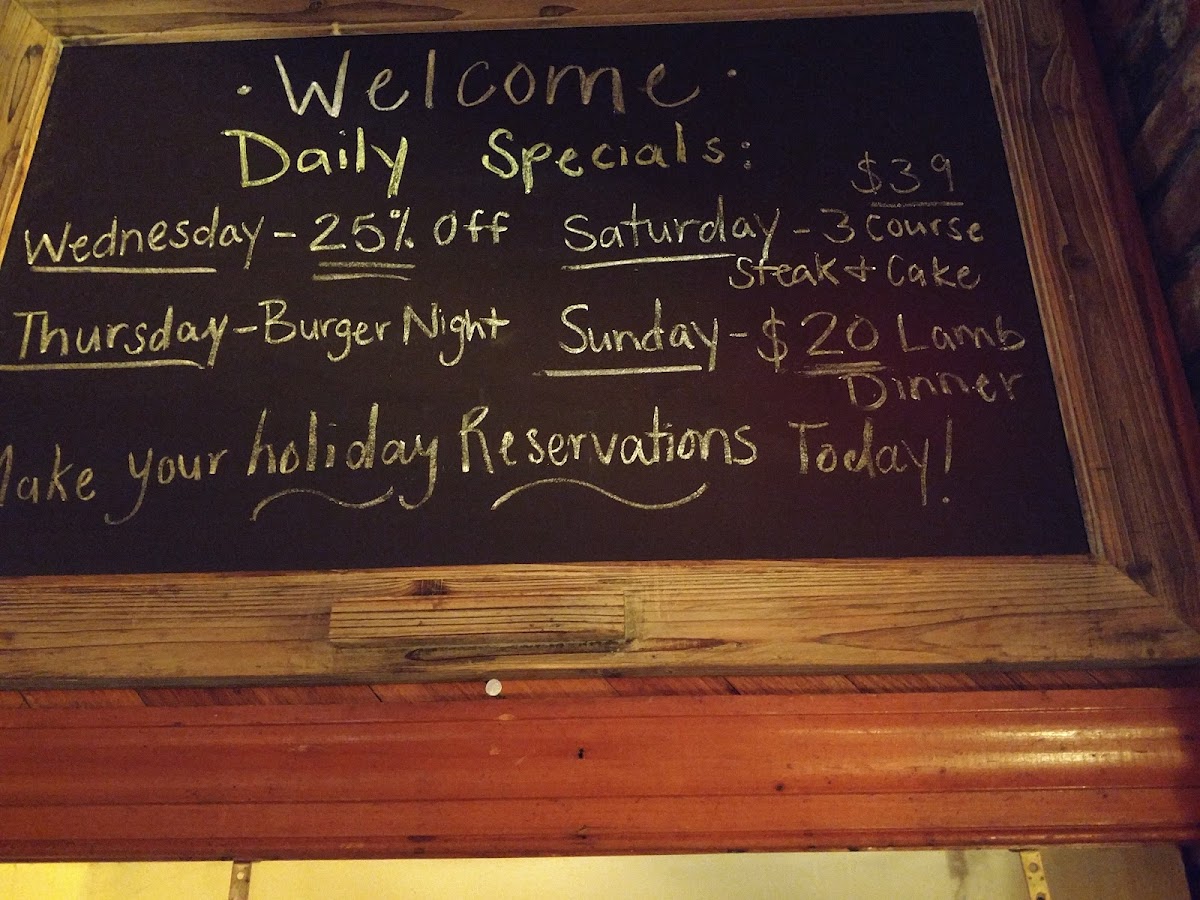 · Welcome ·
Daily Specials:
Wednesday - 25% Off
Thursday - Burger Night
$39
Saturday - 3 Course
Steak + Cake
Sunday - $20 Lamb
Dinner
Make your holiday Reservations Today!